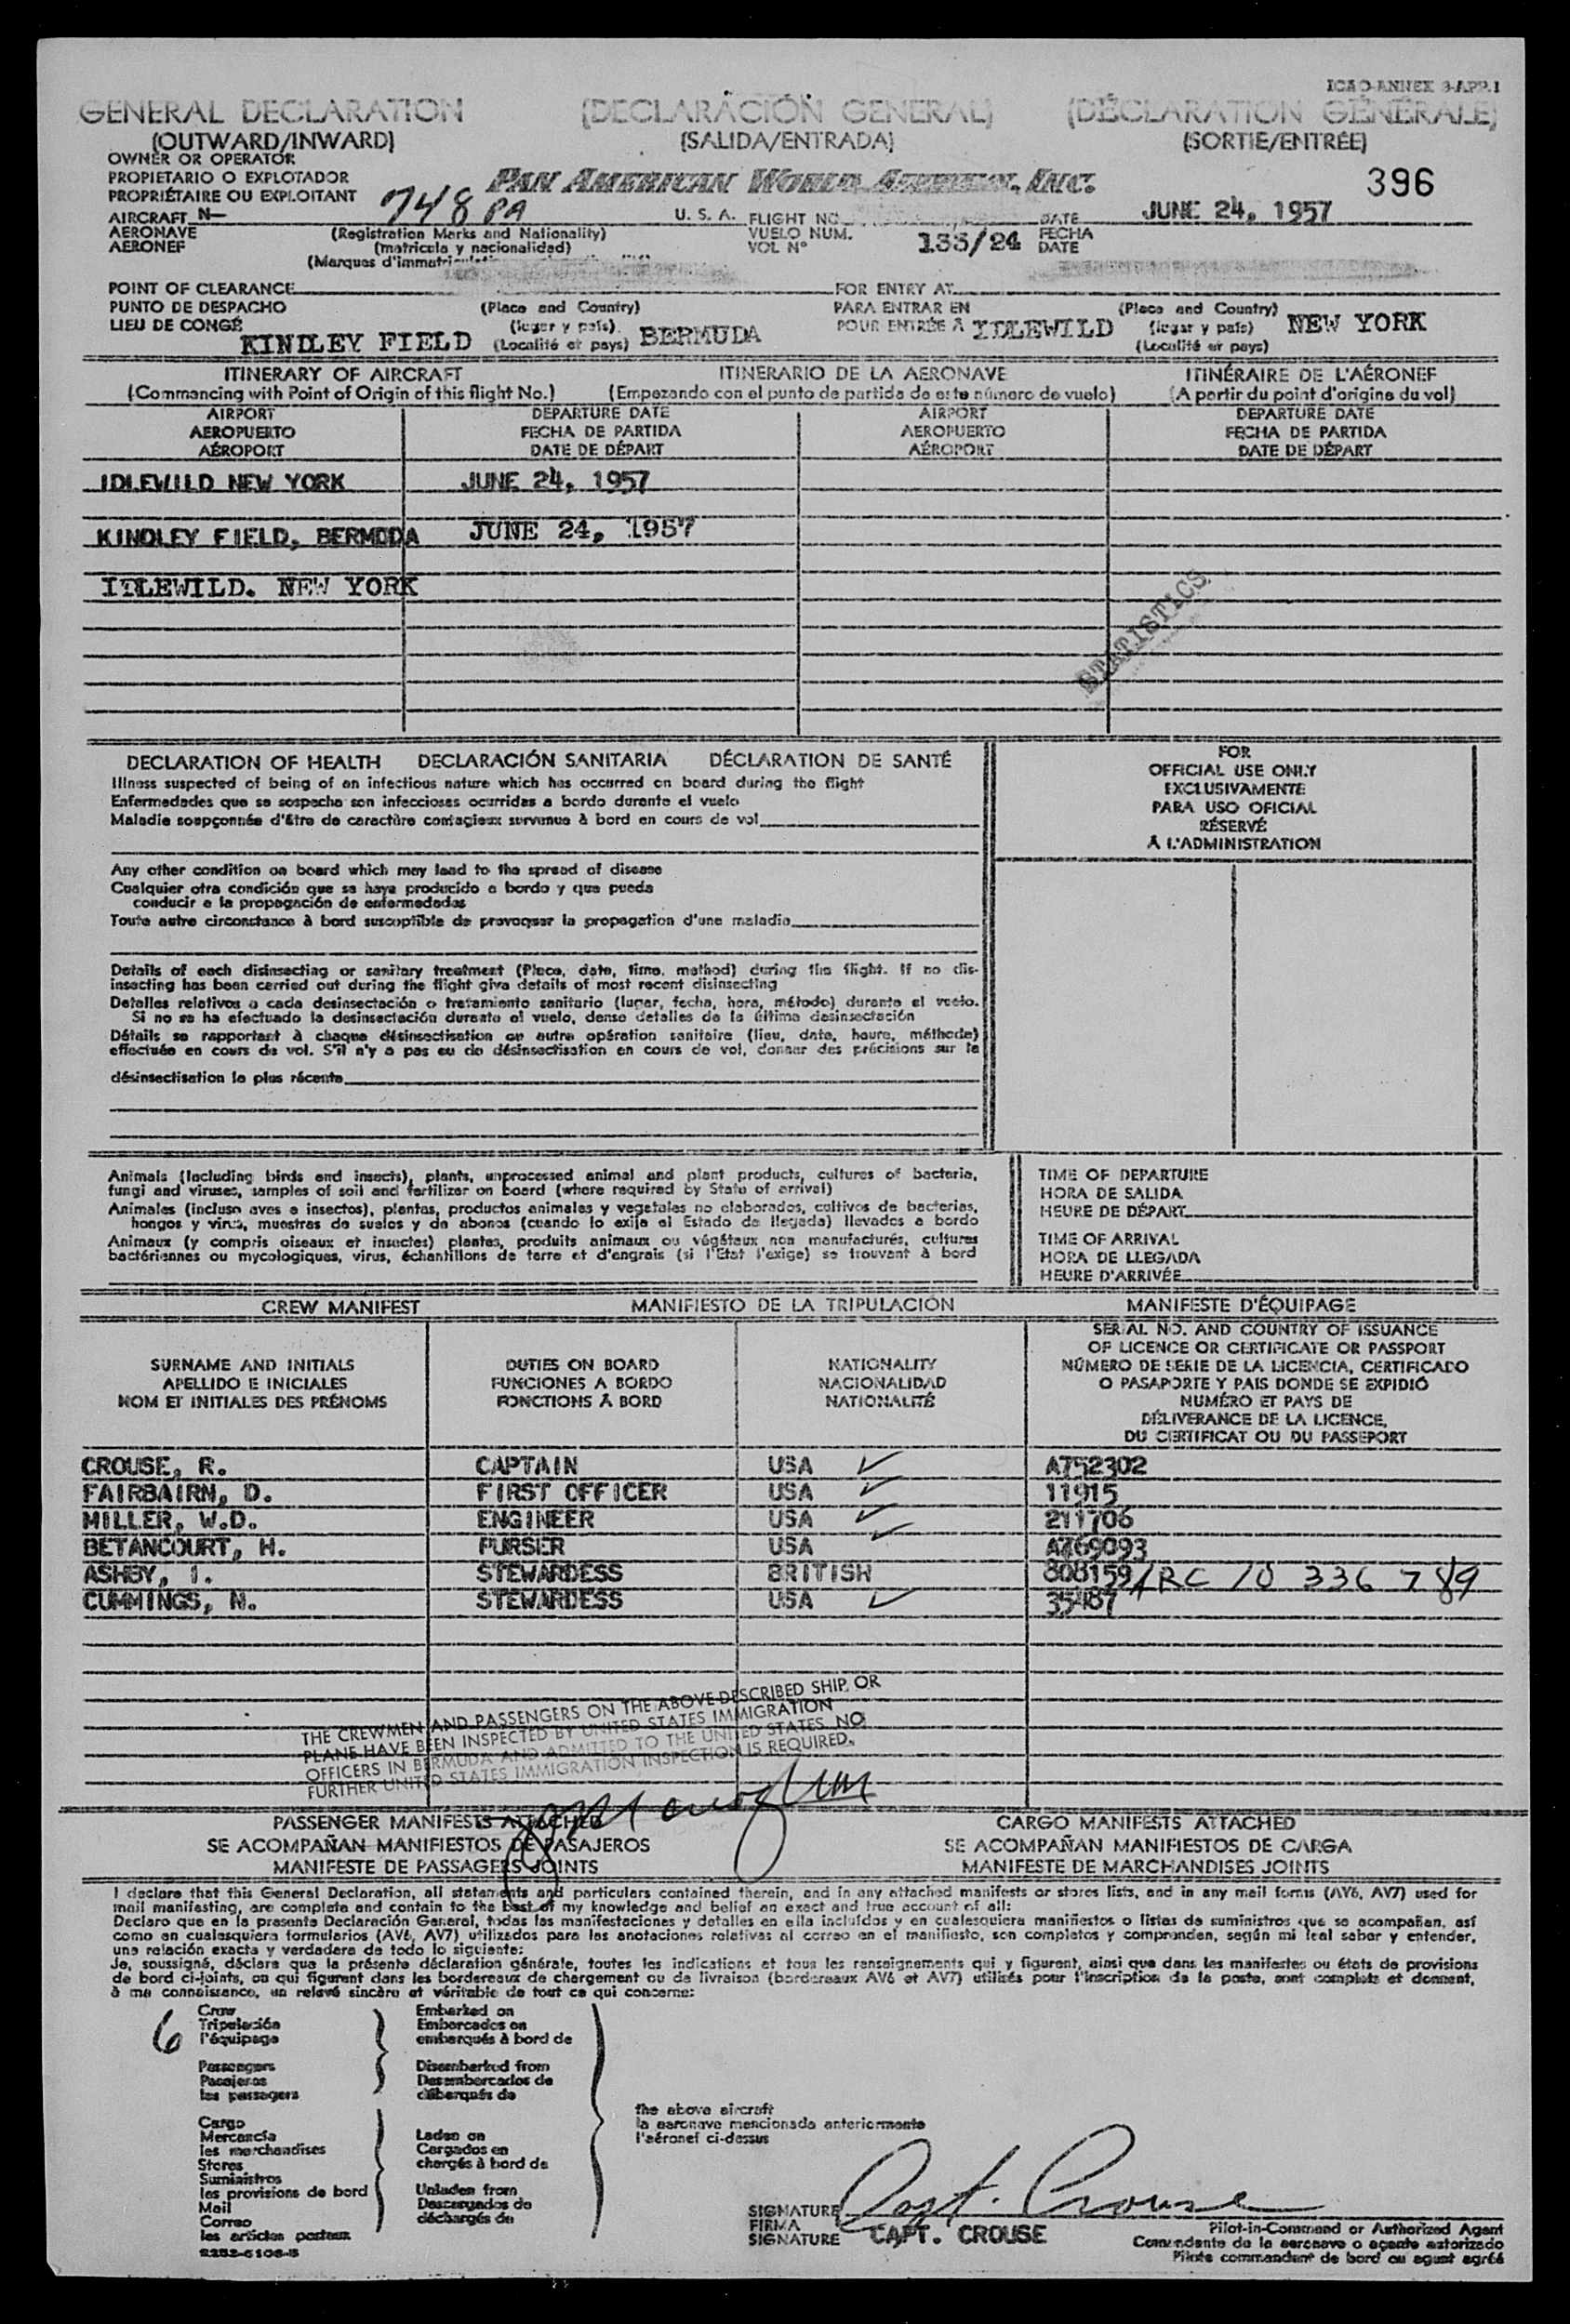 ICAO-ANNEX 9-APP.1
GENERAL DECLARATION (DECLARACIÓN GENERAL) (DÉCLARATION GÉNÉRALE)
(OUTWARD/INWARD) (SALIDA/ENTRADA) (SORTIE/ENTRÉE)
OWNER OR OPERATOR
PROPIETARIO O EXPLOTADOR
PROPRIÉTAIRE OU EXPLOITANT PAN AMERICAN WORLD AIRWAYS, INC. 396
AIRCRAFT N- 748 PA U. S. A. FLIGHT NO. DATE JUNE 24, 1957
AERONAVE (Registration Marks and Nationality) VUELO NUM. 135/24 FECHA
AERONEF (matricula y nacionalidad) VOL Nº DATE
(Marques d'immatriculation
POINT OF CLEARANCE FOR ENTRY AT
PUNTO DE DESPACHO (Place and Country) PARA ENTRAR EN (Place and Country)
LIEU DE CONGÉ KINDLEY FIELD (lugar y país) BERMUDA POUR ENTRÉE À IDLEWILD (lugar y país) NEW YORK
(Localité et pays) (Localité et pays)
ITINERARY OF AIRCRAFT ITINERARIO DE LA AERONAVE ITINÉRAIRE DE L'AÉRONEF
(Commencing with Point of Origin of this flight No.) (Empezando con el punto de partida de este número de vuelo) (A partir du point d'origine du vol)
AIRPORT DEPARTURE DATE AIRPORT DEPARTURE DATE
AEROPUERTO FECHA DE PARTIDA AEROPUERTO FECHA DE PARTIDA
AÉROPORT DATE DE DÉPART AÉROPORT DATE DE DÉPART
IDLEWILD NEW YORK JUNE 24, 1957
KINDLEY FIELD, BERMUDA JUNE 24, 1957
IDLEWILD. NEW YORK
STATISTICS
DECLARATION OF HEALTH DECLARACIÓN SANITARIA DÉCLARATION DE SANTÉ
Illness suspected of being of an infectious nature which has occurred on board during the flight
Enfermedades que se sospecha son infecciosas ocurridas a bordo durante el vuelo
Maladie soupçonnée d'être de caractère contagieux survenue à bord en cours de vol
Any other condition on board which may lead to the spread of disease
Cualquier otra condición que se haya producido a bordo y que pueda
conducir a la propagación de enfermedades
Toute autre circonstance à bord susceptible de provoquer la propagation d'une maladie
Details of each disinsecting or sanitary treatment (Place, date, time, method) during the flight. If no dis-
insecting has been carried out during the flight give details of most recent disinsecting
Detalles relativos a cada desinsectación o tratamiento sanitario (lugar, fecha, hora, método) durante el vuelo.
Si no se ha efectuado la desinsectación durante el vuelo, dense detalles de la última desinsectación
Détails se rapportant à chaque désinsectisation ou autre opération sanitaire (lieu, date, heure, méthode)
effectuée en cours de vol. S'il n'y a pas eu de désinsectisation en cours de vol, donner des précisions sur la
désinsectisation la plus récente
FOR
OFFICIAL USE ONLY
EXCLUSIVAMENTE
PARA USO OFICIAL
RÉSERVÉ
À L'ADMINISTRATION
Animals (including birds and insects), plants, unprocessed animal and plant products, cultures of bacteria,
fungi and viruses, samples of soil and fertilizer on board (where required by State of arrival)
Animales (incluso aves e insectos), plantas, productos animales y vegetales no elaborados, cultivos de bacterias,
hongos y virus, muestras de suelos y de abonos (cuando lo exija el Estado de llegada) llevados a bordo
Animaux (y compris oiseaux et insectes) plantes, produits animaux ou végétaux non manufacturés, cultures
bactériennes ou mycologiques, virus, échantillons de terre et d'engrais (si l'Etat l'exige) se trouvant à bord
TIME OF DEPARTURE
HORA DE SALIDA
HEURE DE DÉPART
TIME OF ARRIVAL
HORA DE LLEGADA
HEURE D'ARRIVÉE
CREW MANIFEST MANIFIESTO DE LA TRIPULACIÓN MANIFESTE D'ÉQUIPAGE
SURNAME AND INITIALS
APELLIDO E INICIALES
NOM ET INITIALES DES PRÉNOMS
DUTIES ON BOARD
FUNCIONES A BORDO
FONCTIONS À BORD
NATIONALITY
NACIONALIDAD
NATIONALITÉ
SERIAL NO. AND COUNTRY OF ISSUANCE
OF LICENCE OR CERTIFICATE OR PASSPORT
NÚMERO DE SERIE DE LA LICENCIA, CERTIFICADO
O PASAPORTE Y PAIS DONDE SE EXPIDIÓ
NUMÉRO ET PAYS DE
DÉLIVERANCE DE LA LICENCE,
DU CERTIFICAT OU DU PASSEPORT
CROUSE, R. CAPTAIN USA ✓ A752302
FAIRBAIRN, D. FIRST OFFICER USA ✓ 11915
MILLER, W.D. ENGINEER USA ✓ 211706
BETANCOURT, H. PURSER USA ✓ A769093
ASHBY, I. STEWARDESS BRITISH 808159/ARC 10 336 789
CUMMINGS, N. STEWARDESS USA ✓ 35487
THE CREWMEN AND PASSENGERS ON THE ABOVE DESCRIBED SHIP OR
PLANE HAVE BEEN INSPECTED BY UNITED STATES IMMIGRATION
OFFICERS IN BERMUDA AND ADMITTED TO THE UNITED STATES. NO
FURTHER UNITED STATES IMMIGRATION INSPECTION IS REQUIRED.
PASSENGER MANIFESTS ATTACHED CARGO MANIFESTS ATTACHED
SE ACOMPAÑAN MANIFIESTOS DE PASAJEROS SE ACOMPAÑAN MANIFIESTOS DE CARGA
MANIFESTE DE PASSAGERS JOINTS MANIFESTE DE MARCHANDISES JOINTS
I declare that this General Declaration, all statements and particulars contained therein, and in any attached manifests or stores lists, and in any mail forms (AV6, AV7) used for
mail manifesting, are complete and contain to the best of my knowledge and belief an exact and true account of all:
Declaro que en la presente Declaración General, todas las manifestaciones y detalles en ella incluídos y en cualesquiera manifiestos o listas de suministros que se acompañan, así
como en cualesquiera formularios (AV6, AV7) utilizados para las anotaciones relativas al correo en el manifiesto, son completos y comprenden, según mi leal saber y entender,
una relación exacta y verdadera de todo lo siguiente:
Je, soussigné, déclare que la présente déclaration générale, toutes les indications et tous les renseignements qui y figurent, ainsi que dans les manifestes ou états de provisions
de bord ci-joints, ou qui figurent dans les bordereaux de chargement ou de livraison (bordereaux AV6 et AV7) utilisés pour l'inscription de la poste, sont complets et donnent,
à ma connaissance, un relevé sincère et véritable de tout ce qui concerne:
6
Crew
Tripulación
l'équipage
Passengers
Pasajeros
les passagers
Cargo
Mercancía
les marchandises
Stores
Suministros
les provisions de bord
Mail
Correo
les articles postaux
Embarked on
Embarcados en
embarqués à bord de
Disembarked from
Desembarcados de
débarqués de
Laden on
Cargados en
chargés à bord de
Unladen from
Descargados de
déchargés de
the above aircraft
la aeronave mencionada anteriormente
l'aéronef ci-dessus
SIGNATURE Capt. Crouse
FIRMA
SIGNATURE CAPT. CROUSE
Pilot-in-Command or Authorized Agent
Comandante de la aeronave o agente autorizado
Pilote commandant de bord ou agent agréé